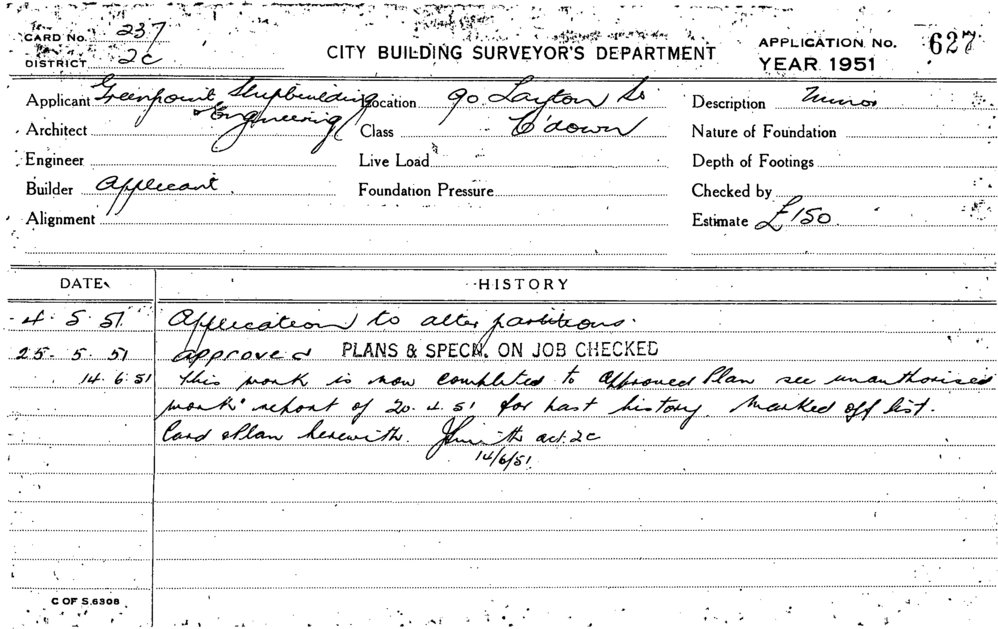 CARD No. 237
DISTRICT 2c
CITY BUILDING SURVEYOR'S DEPARTMENT
APPLICATION No. 627
YEAR 1951
Applicant Greenpoint Shipbuilding & Engineering
Location 90 Layton St
Description Minor
Architect
Class C'down
Nature of Foundation
Engineer
Live Load
Depth of Footings
Builder Applicant.
Foundation Pressure
Checked by
Alignment
Estimate £150.
DATE HISTORY
4. 5. 51. Application to alter partitions.
25. 5. 51 approved PLANS & SPECN. ON JOB CHECKED
14.6.51 This work is now completed to approved Plan see unauthorised
work report of 20.4.51 for past history. Marked off list.
Card & Plan herewith. JSmith act. 2c
14/6/51
C OF S.6308